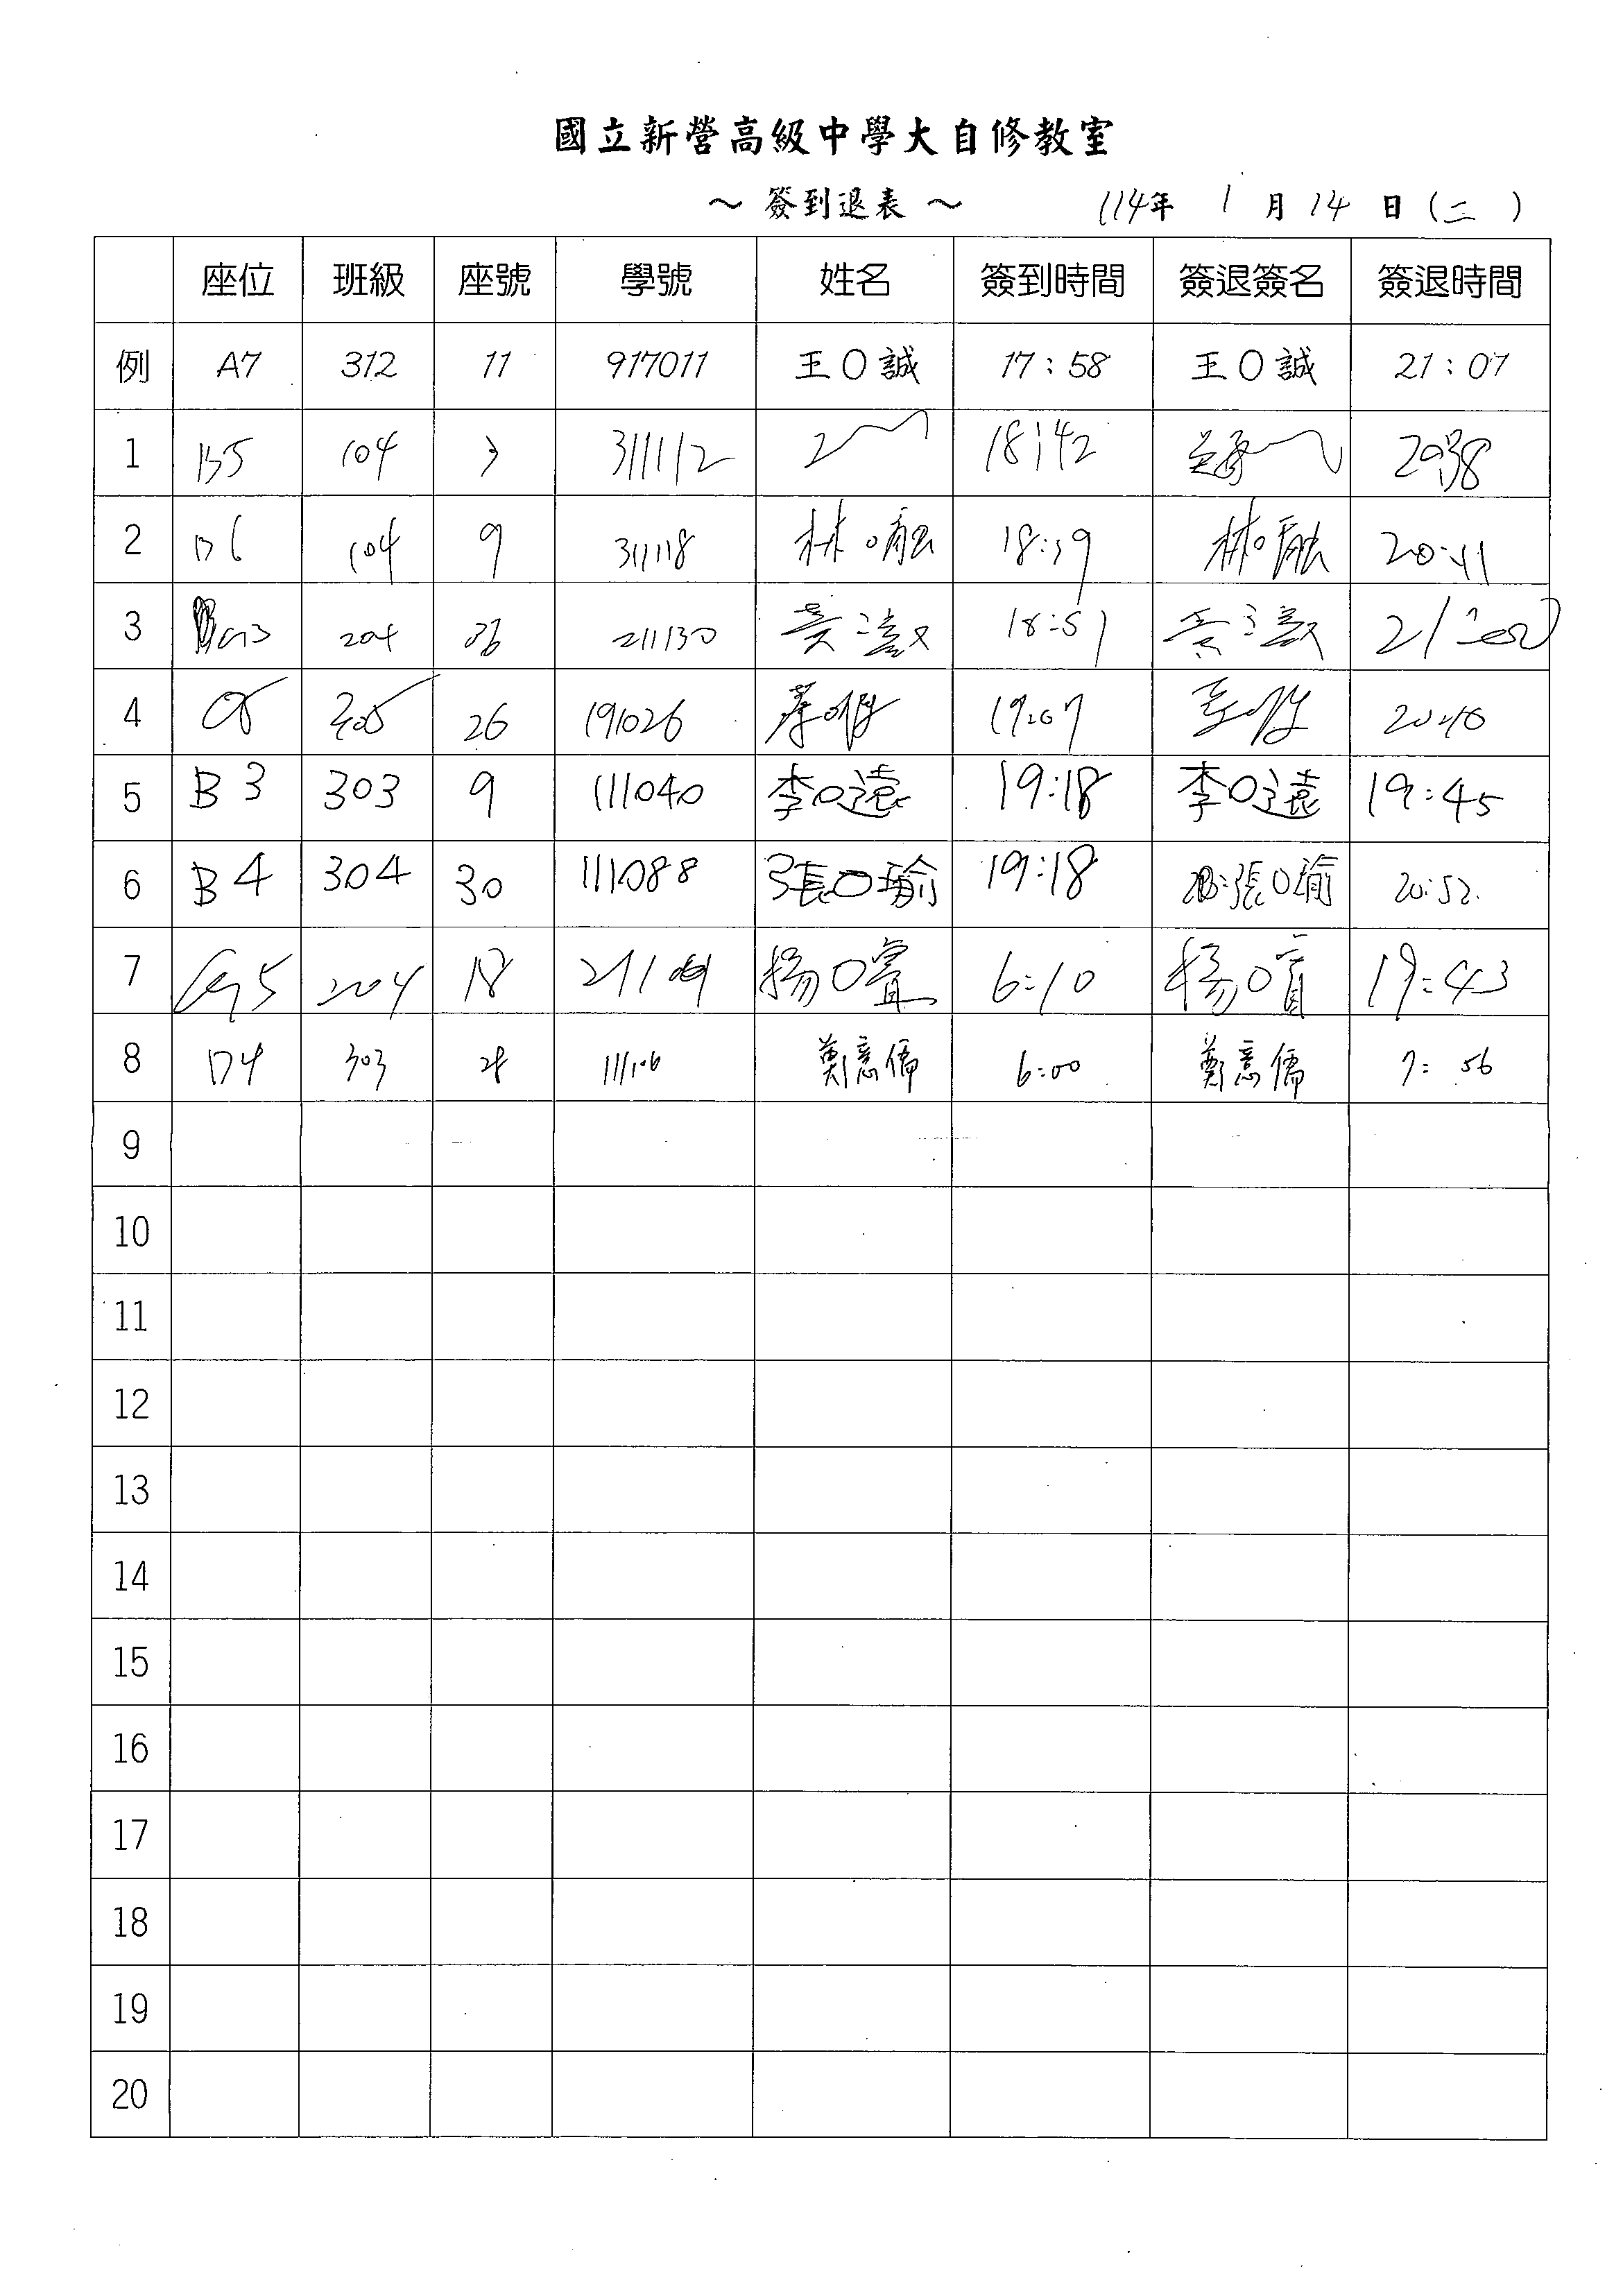 國立新營高級中學大自修教室
～ 簽到退表 ～ 114年 1 月 14 日 (二 )
座位 班級 座號 學號 姓名 簽到時間 簽退簽名 簽退時間
例 A7 312 11 917011 王〇誠 17:58 王〇誠 21:07
1 B5 104 3 311112 18:42 20:38
2 D6 104 9 311118 林〇 18:39 林〇 20:41
3 G3 204 36 211130 黃 18:51 黃
4 26 191026 19:07 20:40
5 B3 303 9 111040 李〇遠 19:18 李〇遠 19:45
6 B4 304 30 111088 張〇瑜 19:18 張〇瑜 20:52
7 G5 204 18 楊〇 6:10 楊〇 19:43
8 D4 303 28 111106 鄭意儒 6:00 鄭意儒 7:56
9
10
11
12
13
14
15
16
17
18
19
20